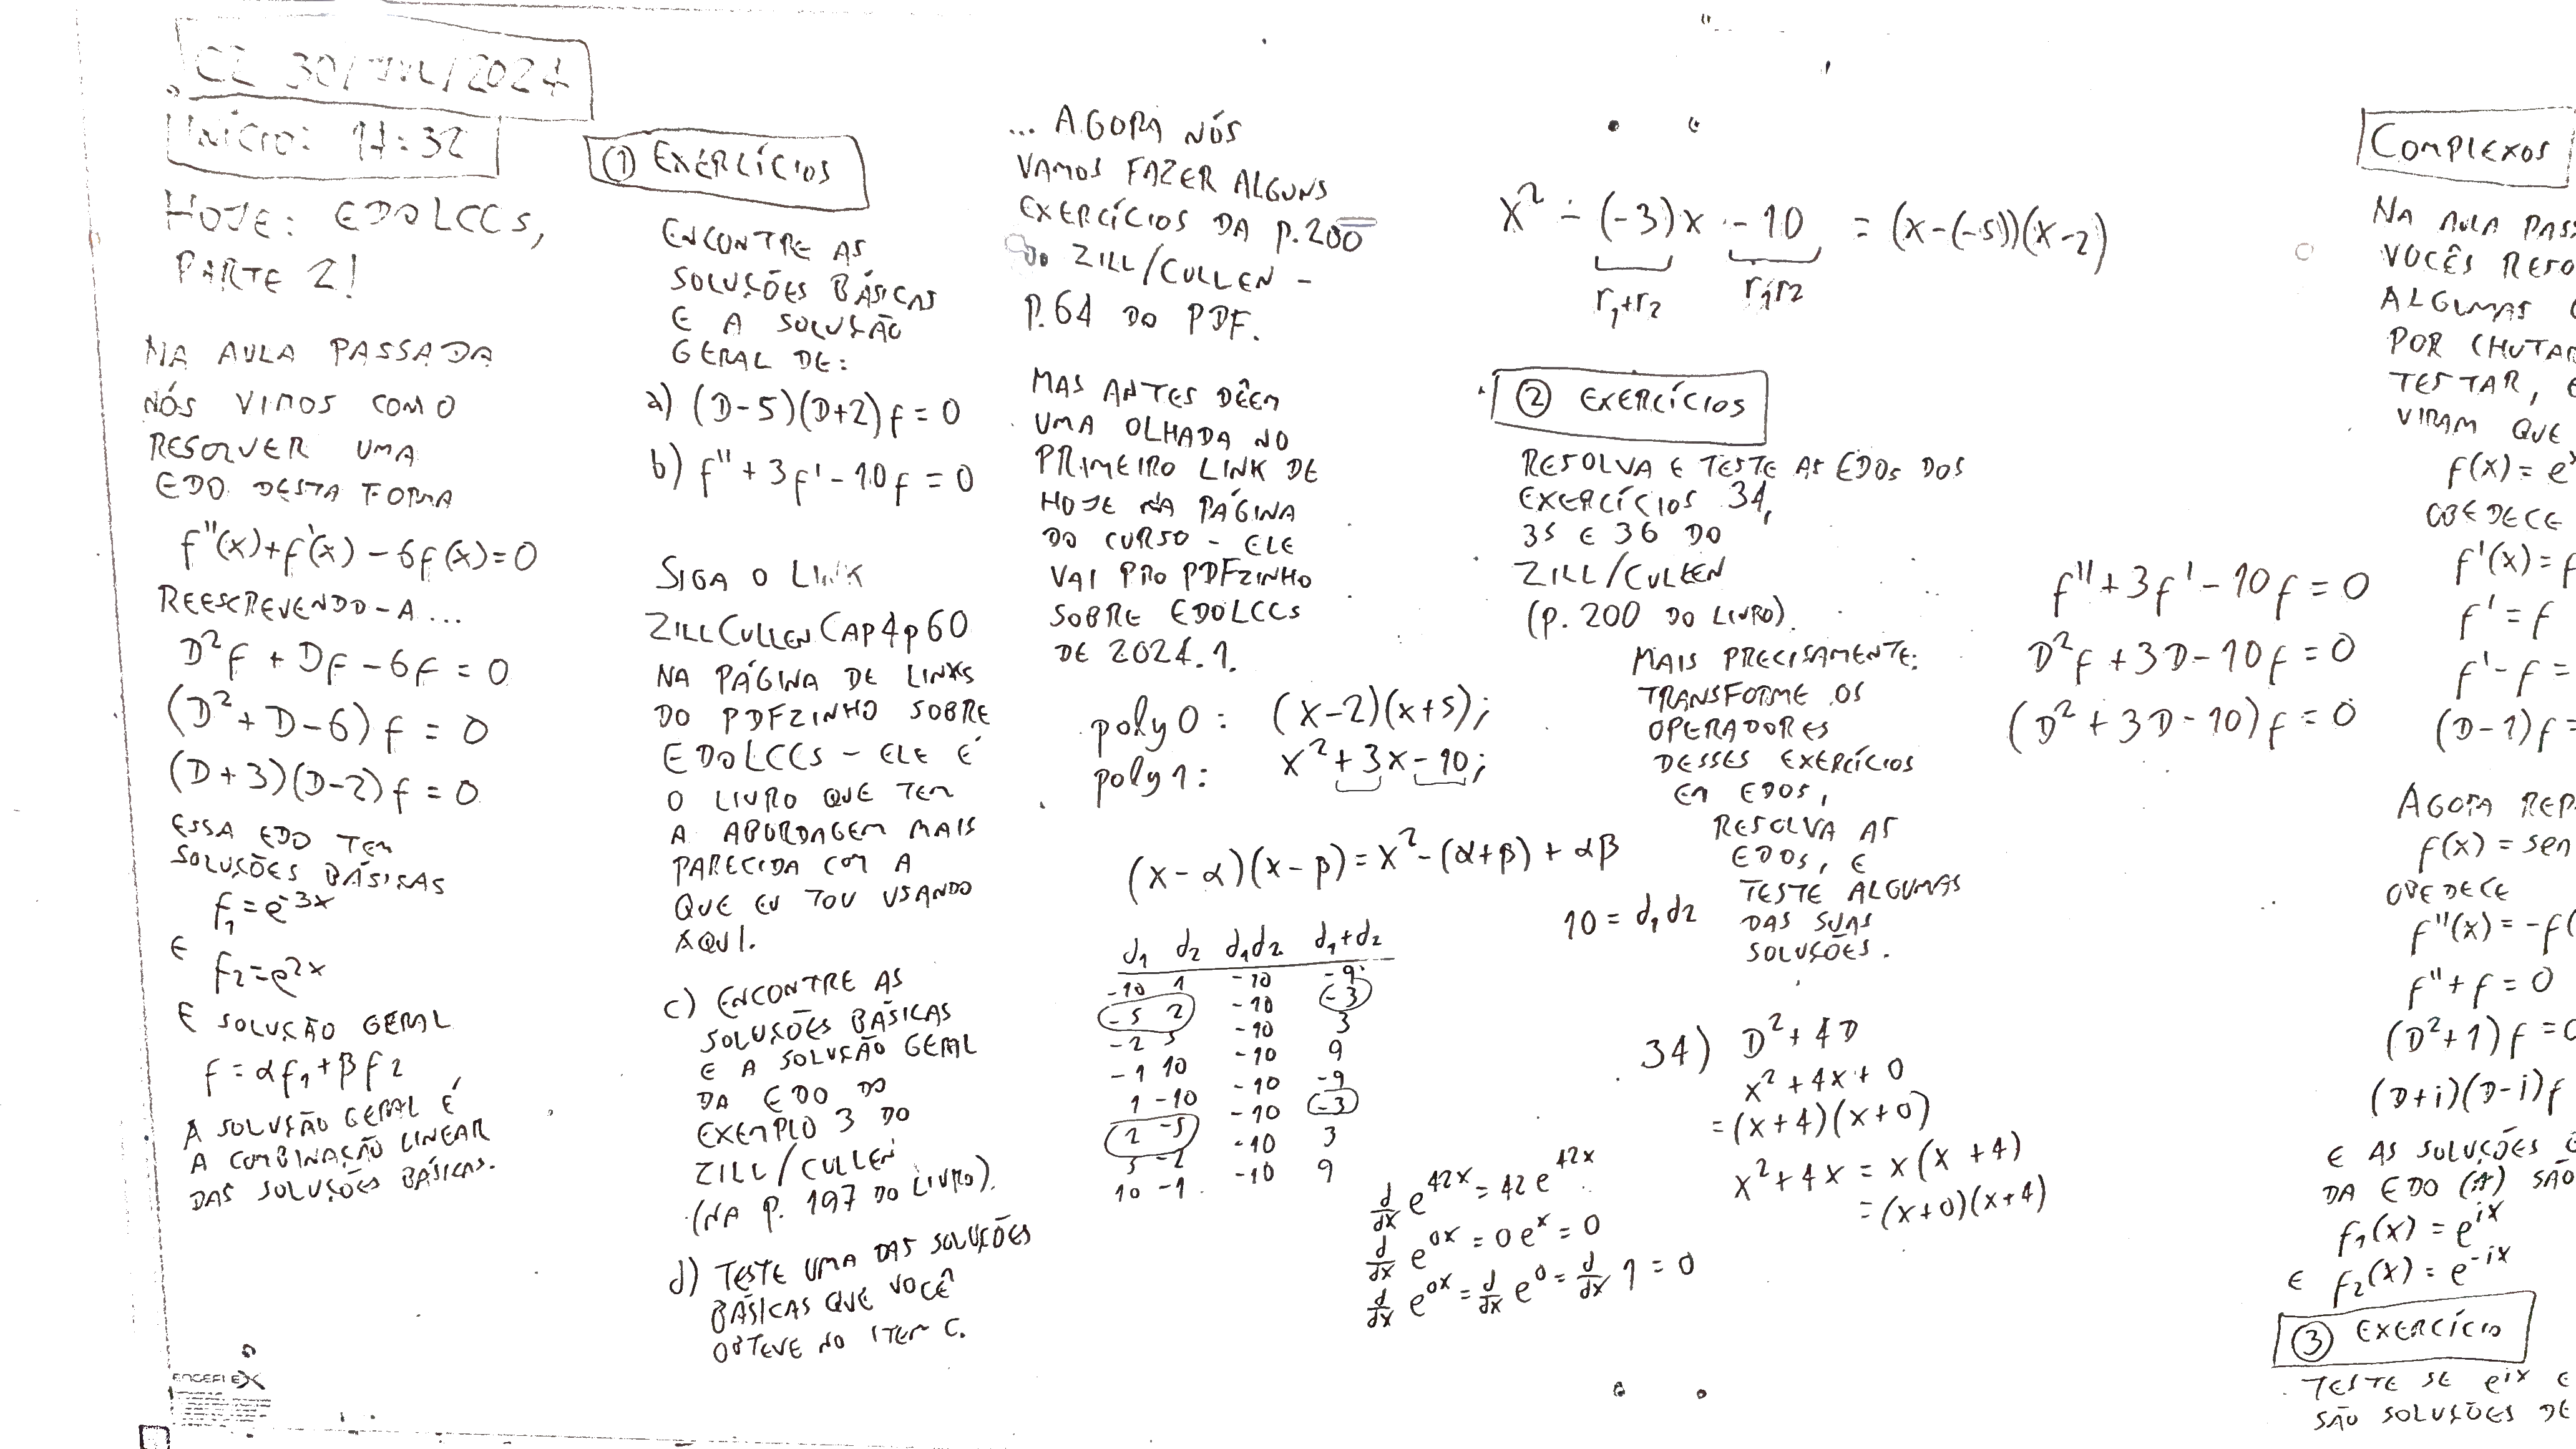 C2 30/JUL/2024
INÍCIO: 14:32
HOJE: EDOLCCS,
PARTE 2!
NA AULA PASSADA
NÓS VIMOS COMO
RESOLVER UMA
EDO DESTA FORMA
f''(x)+f'(x) – 6f(x)=0
REESCREVENDO-A...
D²f + Df – 6f = 0
(D² + D – 6) f = 0
(D+3)(D–2) f = 0
ESSA EDO TEM
SOLUÇÕES BÁSICAS
f₁ = e^-3x
E
f₂ = e^2x
E SOLUÇÃO GERAL
f = αf₁ + βf₂
A SOLUÇÃO GERAL É
A COMBINAÇÃO LINEAR
DAS SOLUÇÕES BÁSICAS.
ENGEFLEX
① EXERCÍCIOS
ENCONTRE AS
SOLUÇÕES BÁSICAS
E A SOLUÇÃO
GERAL DE:
a) (D–5)(D+2)f = 0
b) f'' + 3f' – 10f = 0
SIGA O LINK
ZILLCULLENCAP4p60
NA PÁGINA DE LINKS
DO PDFZINHO SOBRE
EDOLCCS – ELE É
O LIVRO QUE TEM
A ABORDAGEM MAIS
PARECIDA COM A
QUE EU TOU USANDO
AQUI.
c) ENCONTRE AS
SOLUÇÕES BÁSICAS
E A SOLUÇÃO GERAL
DA EDO DO
EXEMPLO 3 DO
ZILL/CULLEN
(NA P. 197 DO LIVRO).
d) TESTE UMA DAS SOLUÇÕES
BÁSICAS QUE VOCÊ
OBTEVE NO ITEM C.
... AGORA NÓS
VAMOS FAZER ALGUNS
EXERCÍCIOS DA p.200
DO ZILL/CULLEN –
P.64 DO PDF.
MAS ANTES DÊEM
UMA OLHADA NO
PRIMEIRO LINK DE
HOJE NA PÁGINA
DO CURSO – ELE
VAI PRO PDFZINHO
SOBRE EDOLCCS
DE 2024.1.
poly0: (x–2)(x+5);
poly1: x² + 3x – 10;
(x – α)(x – β) = x² – (α+β) + αβ
d₁ d₂ d₁d₂ d₁+d₂
-10 1 -10 -9
-5 2 -10 -3
-2 5 -10 3
-1 10 -10 9
1 -10 -10 -9
2 -5 -10 -3
5 -2 -10 3
10 -1 -10 9
10 = d₁d₂
d/dx e^42x = 42e^42x
d/dx e^0x = 0e^x = 0
d/dx e^0x = d/dx e^0 = d/dx 1 = 0
x² – (-3)x – 10 = (x–(-5))(x–2)
r₁+r₂ r₁r₂
② EXERCÍCIOS
RESOLVA E TESTE AS EDOS DOS
EXERCÍCIOS 34,
35 E 36 DO
ZILL/CULLEN
(P. 200 DO LIVRO).
MAIS PRECISAMENTE:
TRANSFORME OS
OPERADORES
DESSES EXERCÍCIOS
EM EDOS,
RESOLVA AS
EDOS, E
TESTE ALGUMAS
DAS SUAS
SOLUÇÕES.
34) D² + 4D
x² + 4x + 0
= (x+4)(x+0)
x² + 4x = x(x+4)
= (x+0)(x+4)
f'' + 3f' – 10f = 0
D²f + 3D – 10f = 0
(D² + 3D – 10)f = 0
COMPLEXOS
NA AULA PASS
VOCÊS RESO
ALGUMAS
POR CHUTAR
TESTAR, E
VIRAM QUE
f(x) = e
OBEDECE
f'(x) = f
f' = f
f' – f =
(D–1)f =
AGORA REP
f(x) = sen
OBEDECE
f''(x) = –f(
f'' + f = 0
(D² + 1) f = 0
(D+i)(D–i)f
E AS SOLUÇÕES
DA EDO (A) SÃO
f₁(x) = e^ix
E f₂(x) = e^-ix
③ EXERCÍCIO
TESTE SE e^ix E
SÃO SOLUÇÕES DE